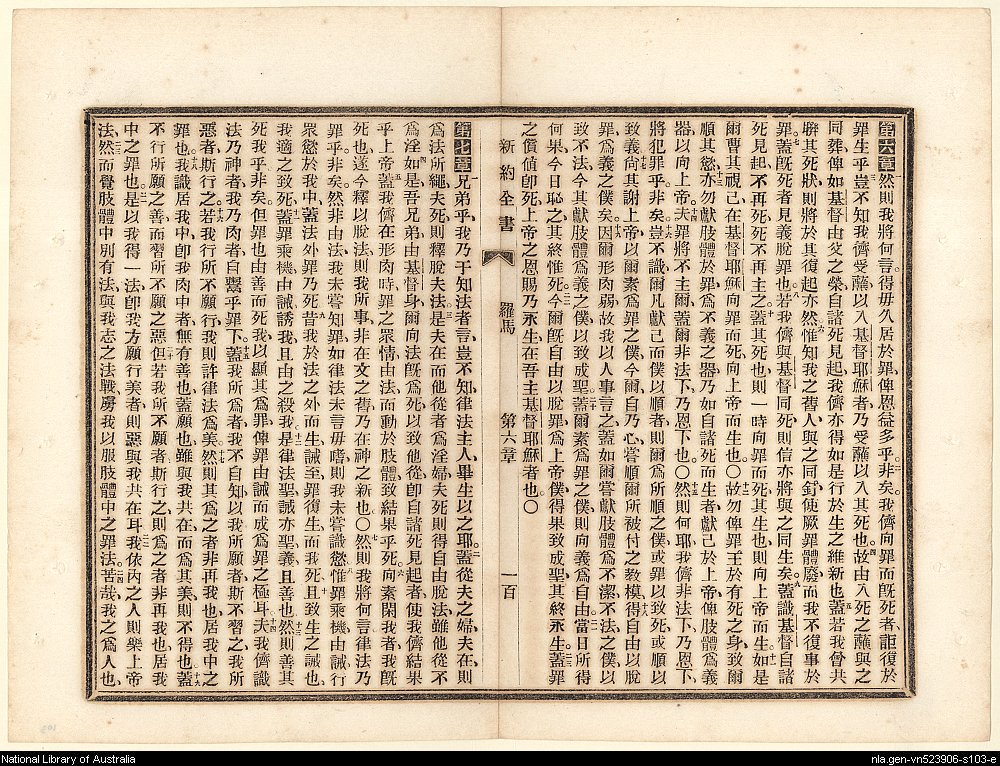 第六章然則我將何言。得毋久居於罪俾恩益多乎。非矣。我儕向罪而旣死者、詎復於
罪生乎。豈不知我儕受蘸以入基督耶穌者、乃受蘸以入其死也。故由入死之蘸與之
同葬、俾如基督由父之榮自諸死見起、我儕亦得如是行於生之維新也。蓋若我曾共
聨其死狀、則將於其復起亦然。惟知我之舊人與之同釘、使厥罪體廢、而我不復事於
罪。蓋旣死者見義脫罪也。若我儕與基督同死、則信亦將與之同生矣。蓋識基督自諸
死見起、不再死、死不再主之。蓋其死也、則一時向罪而死、其生也、則向上帝而生。如是
爾曹其視己在基督耶穌向罪而死、向上帝而生也。〇故勿俾罪王於有死之身、致爾
順其慾、亦勿獻肢體於罪爲不義之器、乃如自諸死而生者獻己於上帝、俾肢體爲義
器、以向上帝。夫罪將不主爾、蓋爾非法下、乃恩下也。〇然則何耶、我儕非法下、乃恩下、
將犯罪乎。非矣。豈不識爾凡獻己而僕以順者、則爾爲所順之僕、或罪以致死、或順以
致義。尙其謝上帝、以爾素爲罪之僕、今爾自乃心嘗順爾所被付之敎模、得自由以脫
罪、爲義之僕矣。因爾形肉弱、故我以人事言之、蓋如爾嘗獻肢體爲不潔不法之僕以
致不法、今其獻肢體爲義之僕以致成聖。蓋爾素爲罪之僕、則向義爲自由。當日所得
何果。今日恥之、其終惟死。今爾旣自由以脫罪、爲上帝僕、得果致成聖、其終永生。蓋罪
之償値卽死、上帝之恩賜乃永生、在吾主基督耶穌者也。〇
新約全書 羅馬 第六章 一百
第七章兄弟乎、我乃于知法者言、豈不知律法主人畢生以之耶。蓋從夫之婦、夫在、則
爲法所繩、夫死、則釋脫夫法。是夫在而他從者爲淫婦、夫死則得自由脫法、雖他從不
爲淫。如是吾兄弟、由基督身爾向法旣爲死、以致他從、卽自諸死見起者、使我儕結果
乎上帝。蓋我儕在形肉時、罪之衆情由法而動於肢體、致結果乎死。向素閑我者我旣
死也、遂今釋以脫法、則我所事非在文之舊、乃在神之新也。〇然則我將何言、律法乃
罪乎。非矣。然非由法、我未嘗知罪、如律法未言毋嗜、則我未嘗識慾。惟罪乘機由誡行
衆慾於我中、蓋法外罪乃死。昔我於法之外而生、誡至罪復生、而我死。且致生之誡也、
我適之致死。蓋罪乘機由誡誘我、且由之殺我。是律法聖、誡亦聖、義且善也。然則善其
死我乎。非矣。但罪也、由善而死我、以顯其爲罪、俾罪由誡而成爲罪之極耳。夫我儕識
法乃神者、我乃肉者、自鬻乎罪下。蓋我所爲者、我不自知、以我所願者、斯不習之、我所
惡者、斯行之。若我行所不願行、我則許律法爲美。然則其爲之者非再我也、居我中之
罪也。我識居我中、卽我肉中者、無有善也、蓋願也、雖與我共在、而爲其美則不得也。蓋
不行所願之善、而習所不願之惡。但若我所不願者斯行之、則爲之者非再我也、居我
中之罪也。是以我得一法、卽我方願行美者、則惡與我共在耳。我依內之人、則樂上帝
法、然而覺肢體中別有法、與我志之法戰、虜我以服肢體中之罪法。苦哉我之爲人也、
National Library of Australia
nla.gen-vn523906-s103-e